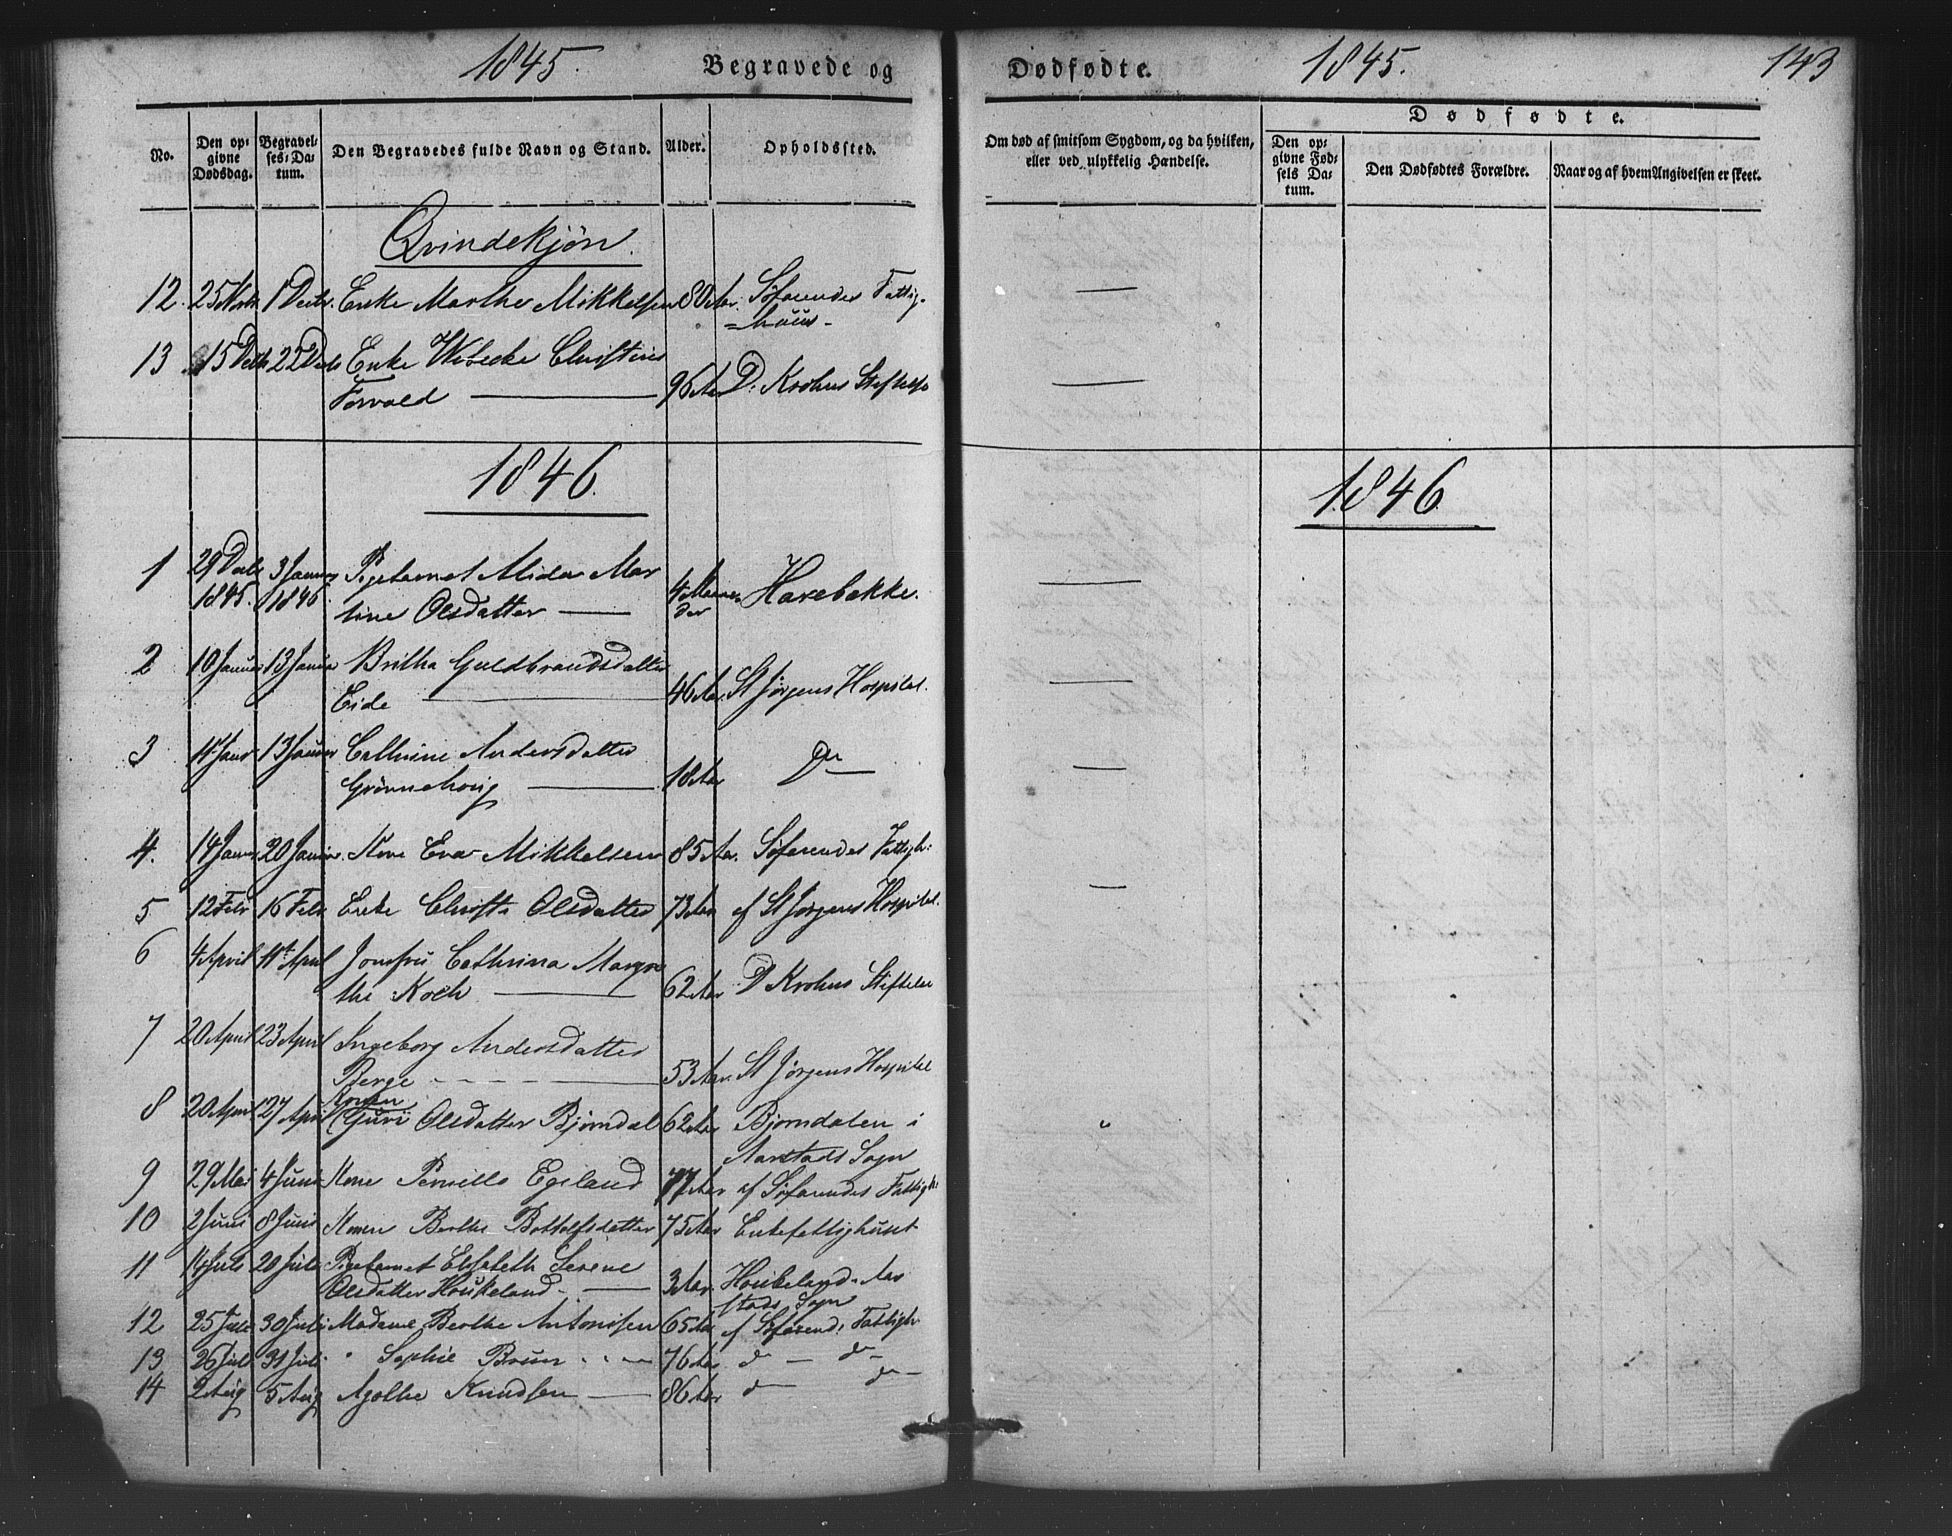 1845. Begravede og
Dødfødte. 1845. 143
No.
Den op-
givne
Dødsdag.
Begravel-
ses-Da-
tum.
Den Begravedes fulde Navn og Stand.
Alder.
Opholdssted.
Om død af smitsom Sygdom, og da hvilken,
eller ved ulykkelig Hændelse.
Dødfødte.
Den op-
givne Fød-
sels Da-
tum.
Den Dødfødtes Forældre.
Naar og af hvem Angivelsen er skeet.
Qvindekjøn.
12. 25 Nov 1 Decbr. Enke Marthe Mikkelsen 80 Aar. Søfarendes Fattig-
=huus-
13 15 Decb 22 Decb Enke Wibecke Christine
Forvald 96 Aar D. Krohns Stiftelse
1846.
1846
1 29 Decb 3 Januar Pigebarnet Alida Mar
1845. 1846 tine Olsdatter 4 Maane- Harebakke.
der
2 10 Januar 13 Januar Britha Guldbrandsdatter
Eide 46 Aar. St Jørgens Hospital.
3 11 Janr 13 Januar Cathrine Andersdatter
Grønnehoug 18 Aar Do
4. 14 Januar 20 Januar. Kone Eva Mikkelsen 85 Aar. Søfarendes Fattigh:
5 12 Febr 16 Febr Enke Christi Olsdatter 73 Aar af St Jørgens Hospital.
6 4 April 11 April Jomfru Cathrina Margre
the Koch 62 Aar D Krohns Stiftelse
7 20 April 23 April Ingeborg Andersdatter
Berge 53 Aar. St Jørgens Hospital
8 20 April 27 April Konen
Guri Olsdatter Bjørndal 62 Aar Bjørndalen i
Aarstads Sogn
9 29 Mai 4 Juni Kone Pernille Egeland 77 Aar af Søfarendes Fattigh:
10 2 Juni 8 Juni Konen Berthe Bottolfsdatter 75 Aar Enkefattighuset
11 14 Juli 20 Juli Pigebarnet Elisabeth Serene
Olsdatter Houkeland. 3 Aar. Houkeland. Aar
stads Sogn
12 25 Juli 30 Juli Madame Berthe Antonisen 65 Aar af Søfarend: Fattigh
13 26 Juli 31 Juli " Sophie Bruun 76 Aar. do do
14 2 Aug 5 Aug Agethe Knudsen 86 Aar do do